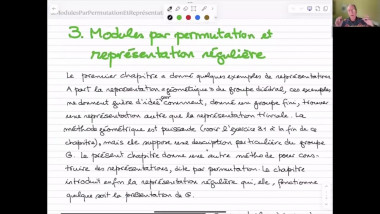 3. Modules par permutation et
représentation régulière
Le premier chapitre a donné quelques exemples de représentations.
A part la représentation géométrique du groupe diédral, ces exemples
ne donnent guère d'idée comment, donné un groupe fini, trouver
une représentation autre que la représentation triviale. La
méthode géométrique est puissante (voir l'exercice à la fin de ce
chapitre), mais elle suppose une description particulière du groupe
G. Le présent chapitre donne une autre méthode pour cons-
truire des représentations, dite par permutation. Le chapitre
introduit enfin la représentation régulière qui, elle, fonctionne
quelque soit la présentation de G.